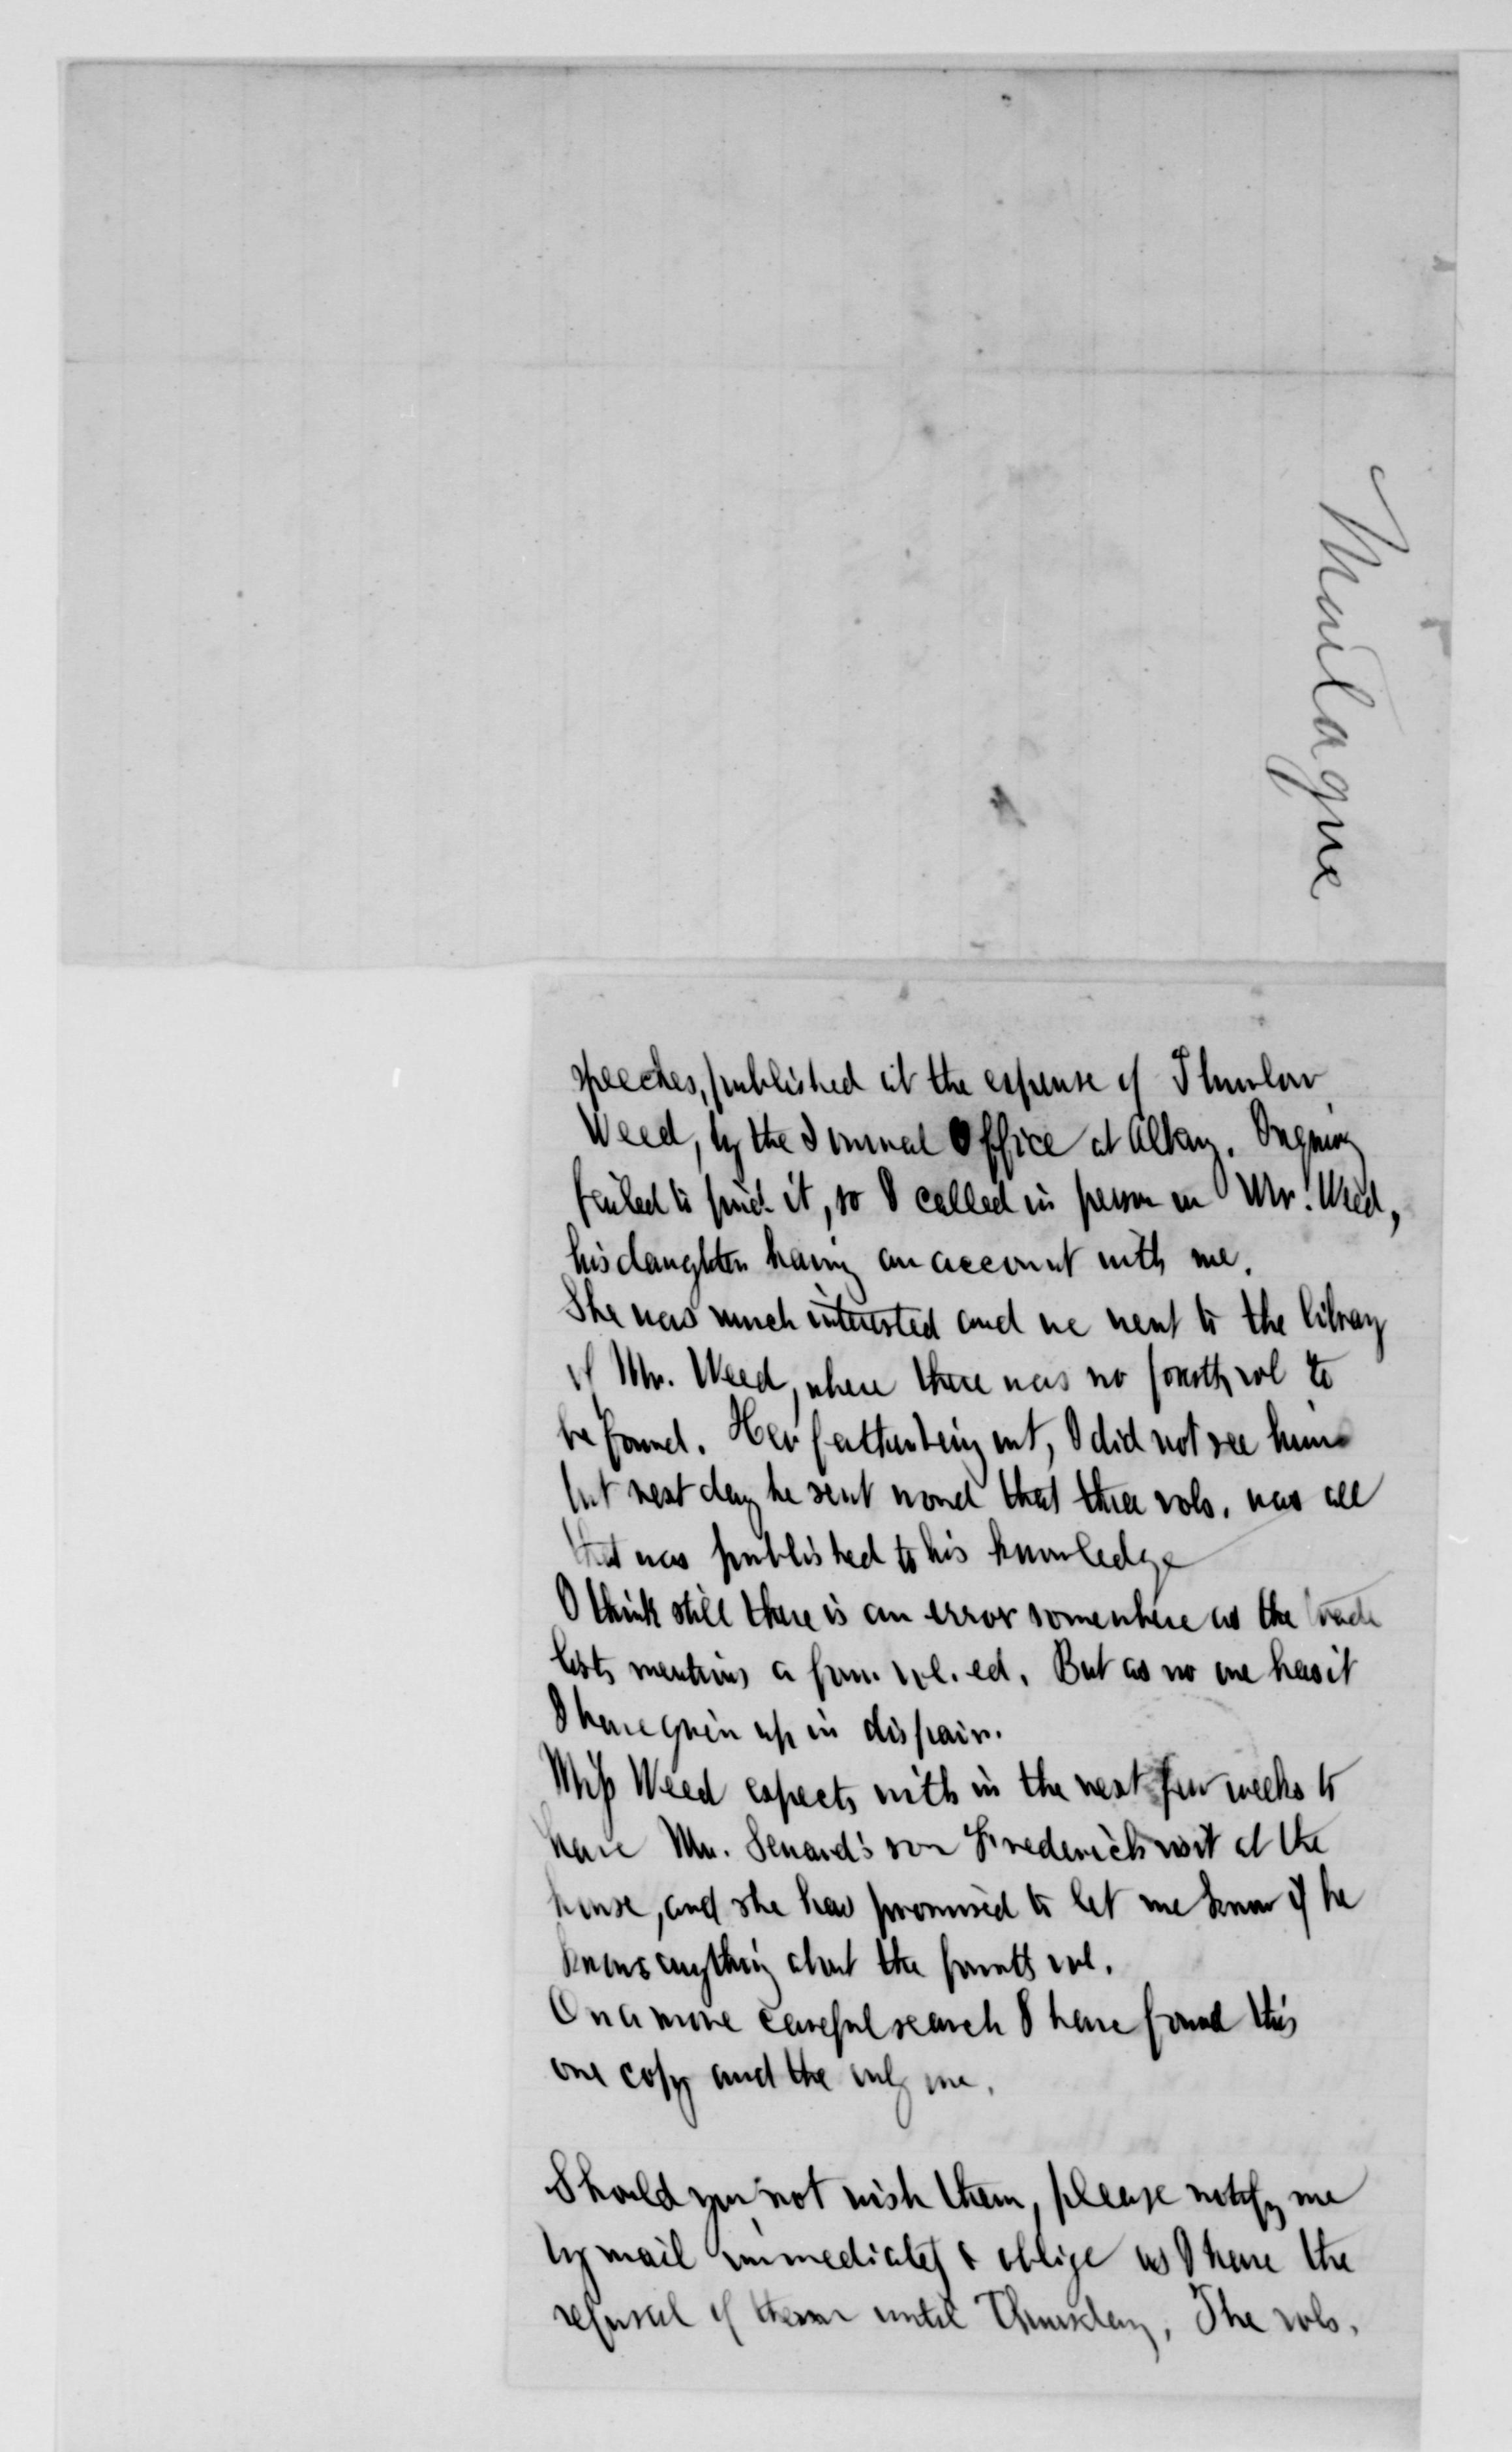 Montagne
speeches, published at the expense of Thurlow
Weed, by the Journal Office at Albany. Inquiry
failed to find it, so I called in person on Mr. Weed,
his daughter having an account with me.
She was much interested and we went to the library
of Mr. Weed, where there was no fourth vol to
be found. Her father being out, I did not see him
but next day he sent word that three vols. was all
that was published to his knowledge
I think still there is an error somewhere as the trade
lists mentions a four vol. ed. But as no one has it
I have given up in dispair.
Miss Weed expects with in the next few weeks to
have Mr. Seward's son Frederick visit at the
house, and she has promised to let me know if he
knows anything about the fourth vol.
On a more careful search I have found this
one copy and the only one.
Should you not wish them, please notify me
by mail immediately & oblige as I have the
refusal of them until Thursday. The vols.